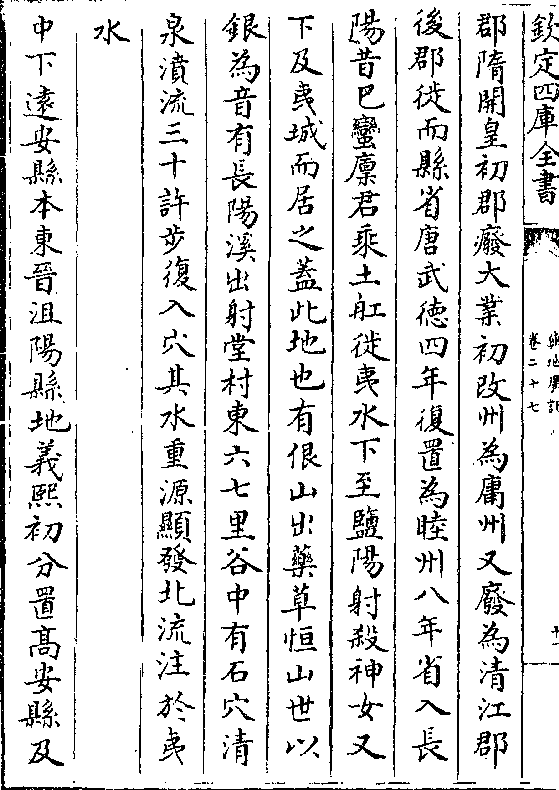 欽定四庫全書
輿地廣記
卷二十七
郡隋開皇初郡癈大業初改州為庸州又廢為清江郡
後郡徙而縣省唐武徳四年復置為睦州八年省入長
陽昔巴蠻廪君乘土舡徙夷水下至鹽陽射殺神女又
下及夷城而居之蓋此地也有佷山出藥草恒山世以
銀為音有長陽溪出射堂村東六七里谷中有石穴清
泉濆流三十許步復入穴其水重源顯發北流注於夷
水
中下逺安縣本東晉沮陽縣地義熙初分置髙安縣及